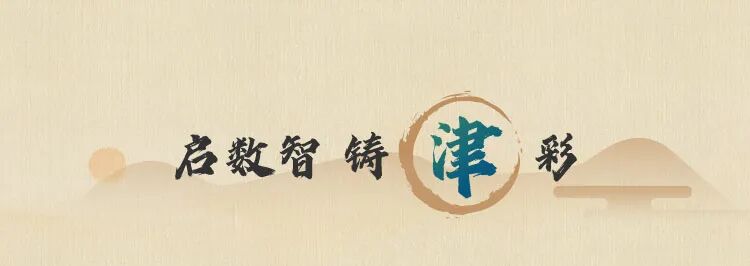 启数智 铸 津 彩